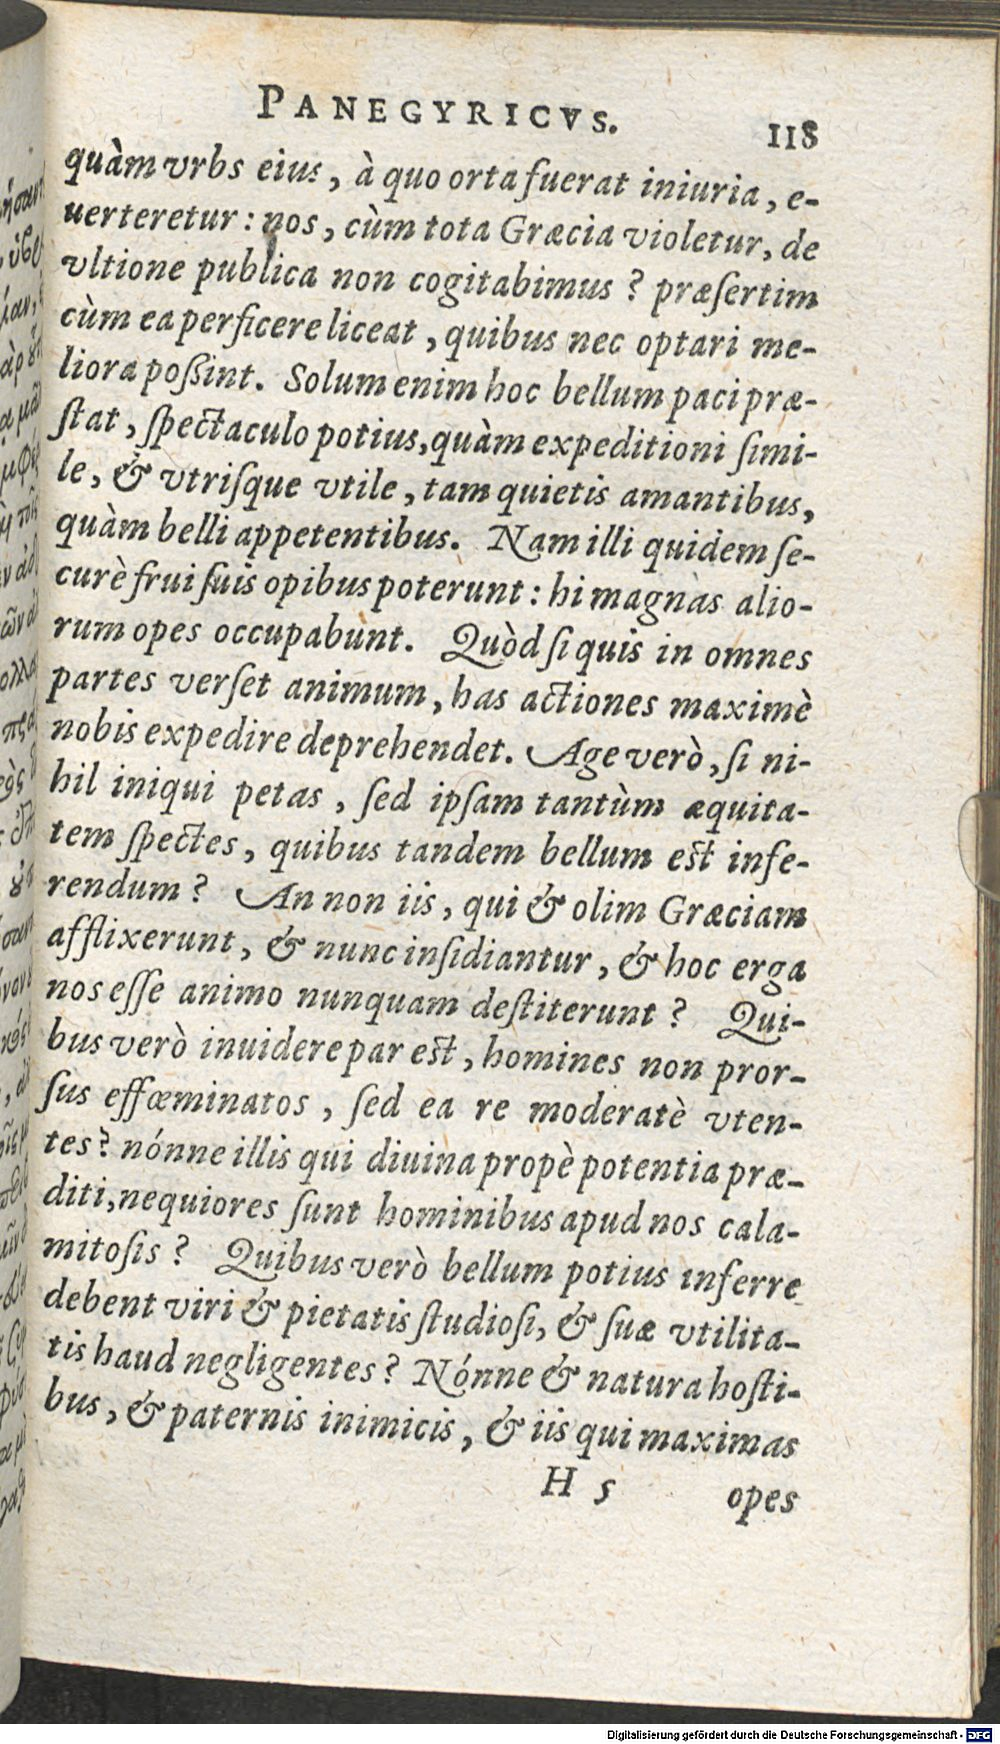 PANEGYRICVS. 118
quàm vrbs eius, à quo orta fuerat iniuria, e-
uerteretur: nos, cùm tota Græcia violetur, de
vltione publica non cogitabimus? præſertim
cùm ea perficere liceat, quibus nec optari me-
liora poßint. Solum enim hoc bellum paci præ-
ſtat, ſpectaculo potius, quàm expeditioni ſimi-
le, & vtriſque vtile, tam quietis amantibus,
quàm belli appetentibus. Nam illi quidem ſe-
curè frui ſuis opibus poterunt: hi magnàs alio-
rum opes occupabunt. Quòd ſi quis in omnes
partes verſet animum, has actiones maximè
nobis expedire deprehendet. Age verò, ſi ni-
hil iniqui petas, ſed ipſam tantùm æquita-
tem ſpectes, quibus tandem bellum est infe-
rendum? An non iis, qui & olim Græciam
afflixerunt, & nunc inſidiantur, & hoc erga
nos eſſe animo nunquam deſtiterunt? Qui-
bus verò inuidere par est, homines non pror-
ſus effœminatos, ſed ea re moderatè vten-
tes? nónne illis qui diuina propè potentia præ-
diti, nequiores ſunt hominibus apud nos cala-
mitoſis? Quibus verò bellum potius inferre
debent viri & pietatis ſtudioſi, & ſuæ vtilita-
tis haud negligentes? Nónne & natura hoſti-
bus, & paternis inimicis, & iis qui maximas
H 5 opes
Digitalisierung gefördert durch die Deutsche Forschungsgemeinschaft - DFG